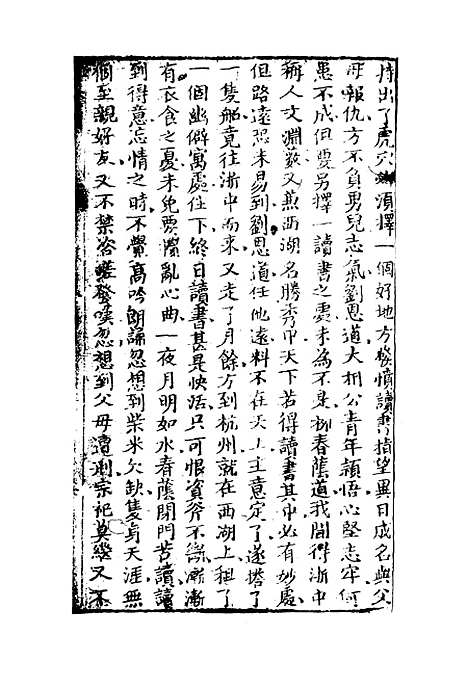 持出了虎穴須擇一個好地方發憤讀書指望異日成名與父
母報仇方不負男兒志氣劉恩道大相公青年穎悟心堅志牢何
患不成但要另擇一讀書之處未為不是柳春蔭道我聞得浙中
稱人文淵藪又兼西湖名勝秀甲天下若得讀書其中必有妙處
但路遠恐未易到劉恩道任他遠料不在天上主意定了遂搭了
一隻船竟往浙中而來又走了月餘方到杭州就在西湖上租了
一個幽僻寓處住下終日讀書甚是快活只可恨資斧不繼漸漸
有衣食之憂未免要擾亂心曲一夜月明如水春蔭閉門苦讀讀
到得意忘情之時不覺高吟朗誦忽想到柴米欠缺隻身天涯無
個至親好友又不禁咨嗟發嘆忽想到父母遭刑宗祀莫繼又不